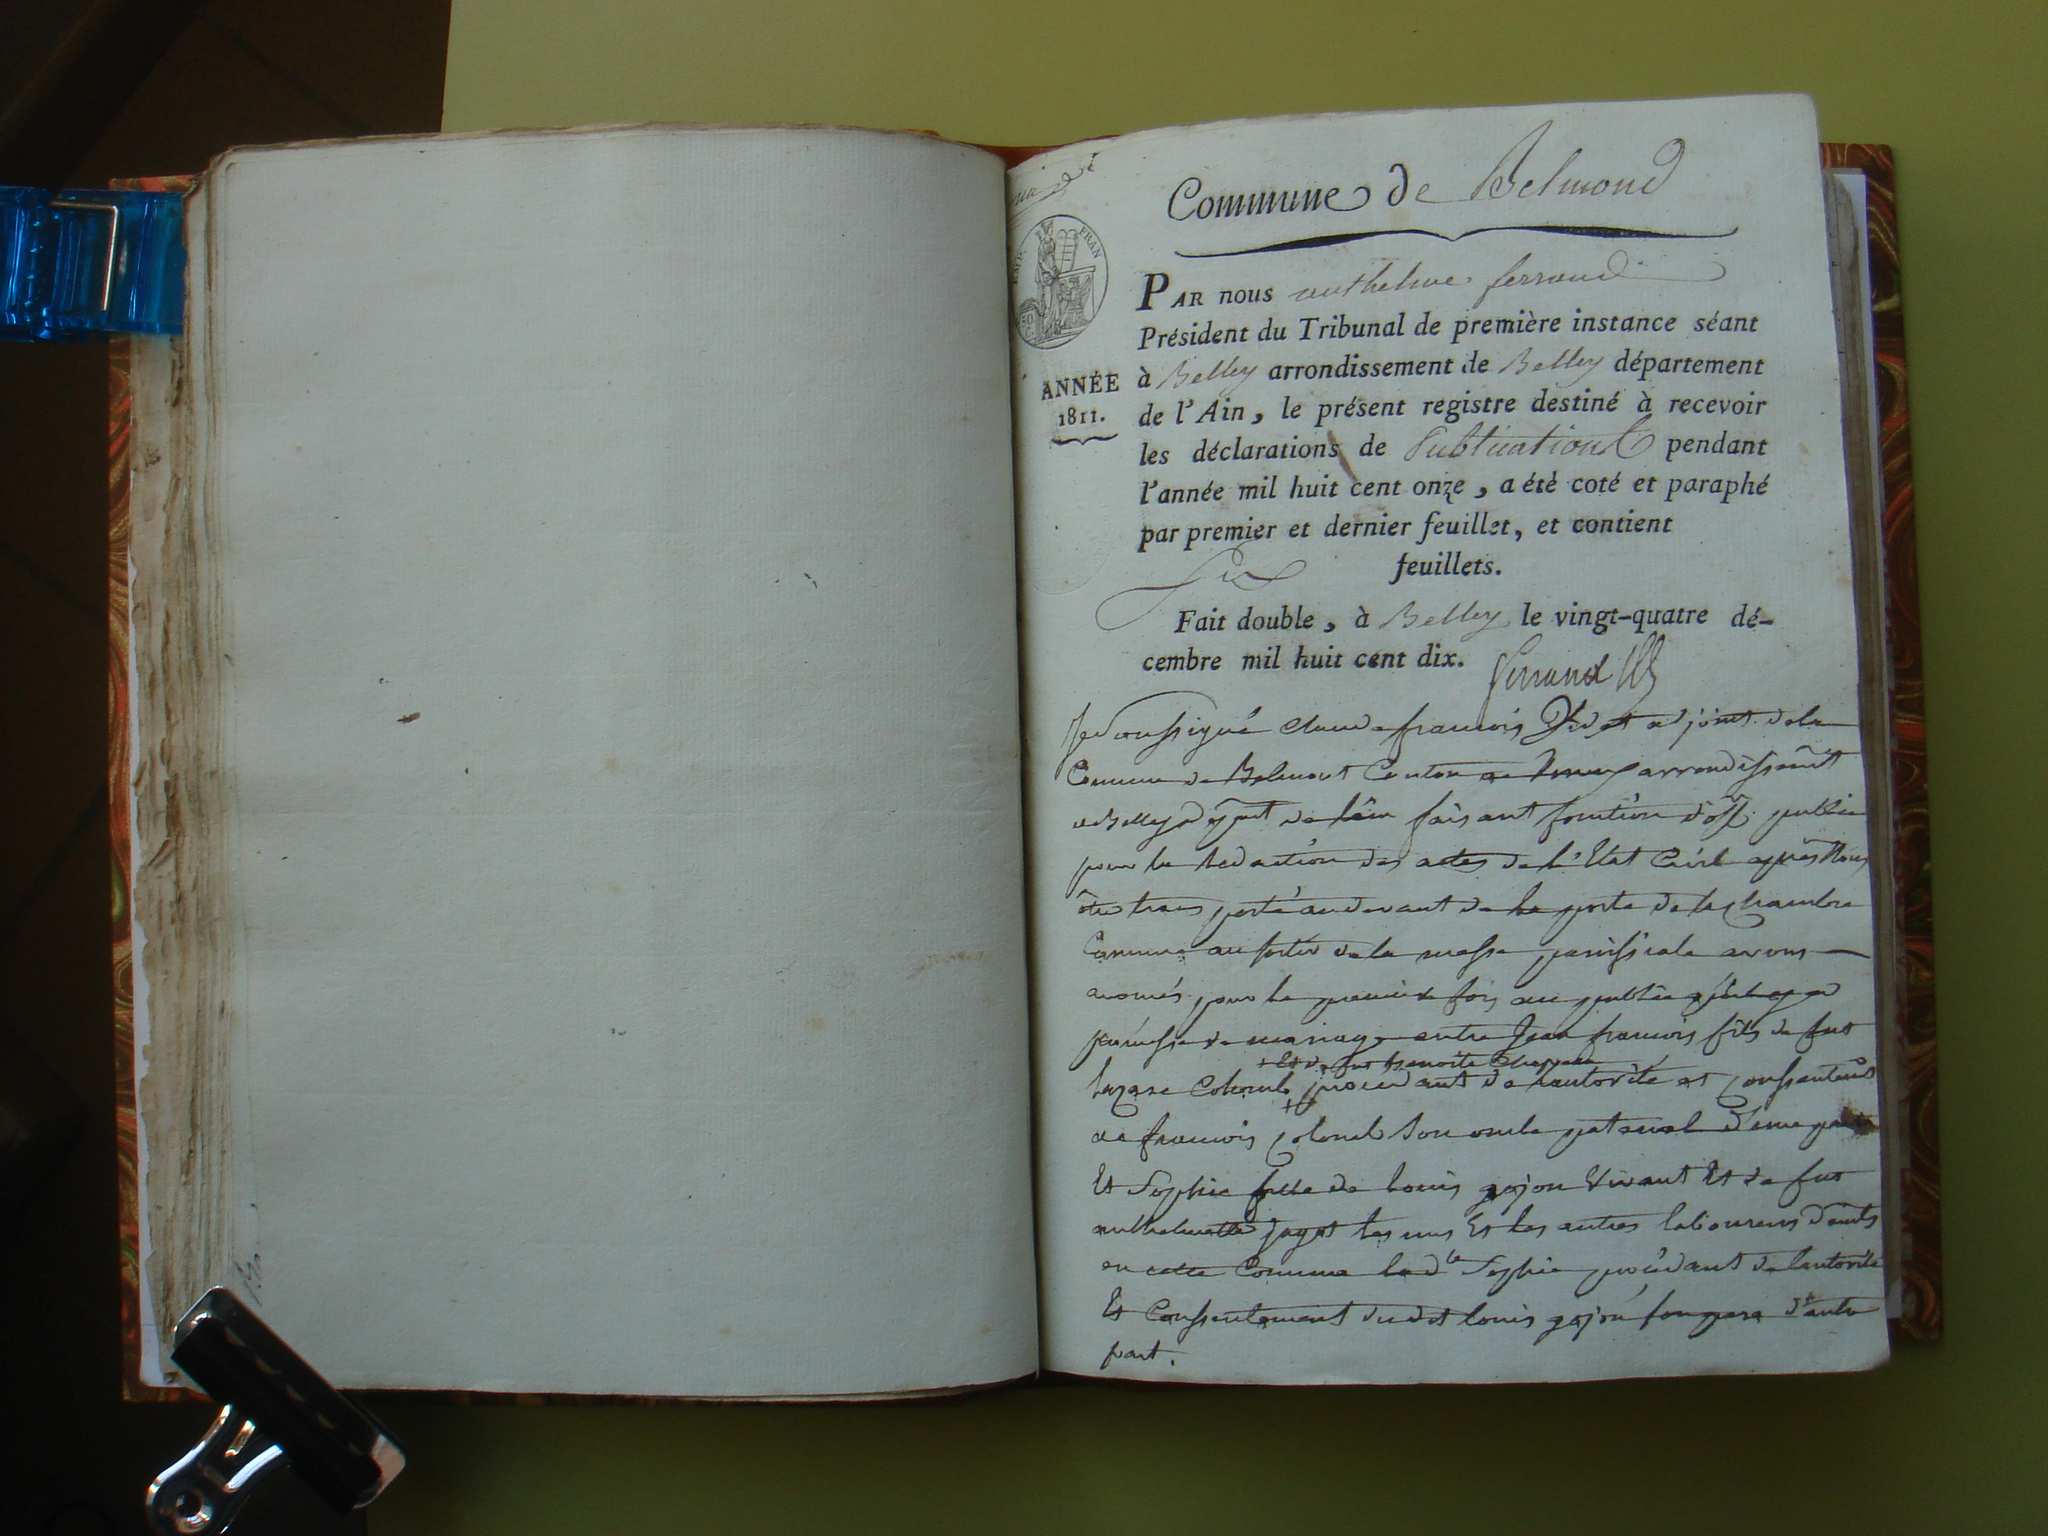 Commune de Belmond
EMP. FRAN
PAR nous anthelme ferrand
Président du Tribunal de première instance séant
ANNÉE
1811.
à Belley arrondissement de Belley département
de l'Ain, le présent registre destiné à recevoir
les déclarations de Publications pendant
l'année mil huit cent onze, a été coté et paraphé
par premier et dernier feuillet, et contient
Six feuillets.
Fait double, à Belley le vingt-quatre dé-
cembre mil huit cent dix. ferrand
Je soussigné Claude francois adjoint de la
Commune de Belmont Canton de arrondissemt
de Belley depmt de lain faisant fonction d'off. public
pour la redaction des actes de l'Etat Civil après Nous
être transporté au devant de la porte de la chambre
Commune au sortir de la messe paroissiale avons
anoncés pour la premiere fois au public qu'il y a
promesse de mariage entre Jean francois fils de fut
+ Et de fut benoite
lazare Colomb + procedant de lautorité et consentement
de francois Colomb son oncle paternel d'une part
Et Sophie fille de louis gojon vivant Et de fut
anthelmette jagot les uns Et les autres laboureurs
en cette Commune la dte Sophie procédant de lautorité
Et Consentement dudit louis gojon son pere d'autre
part.